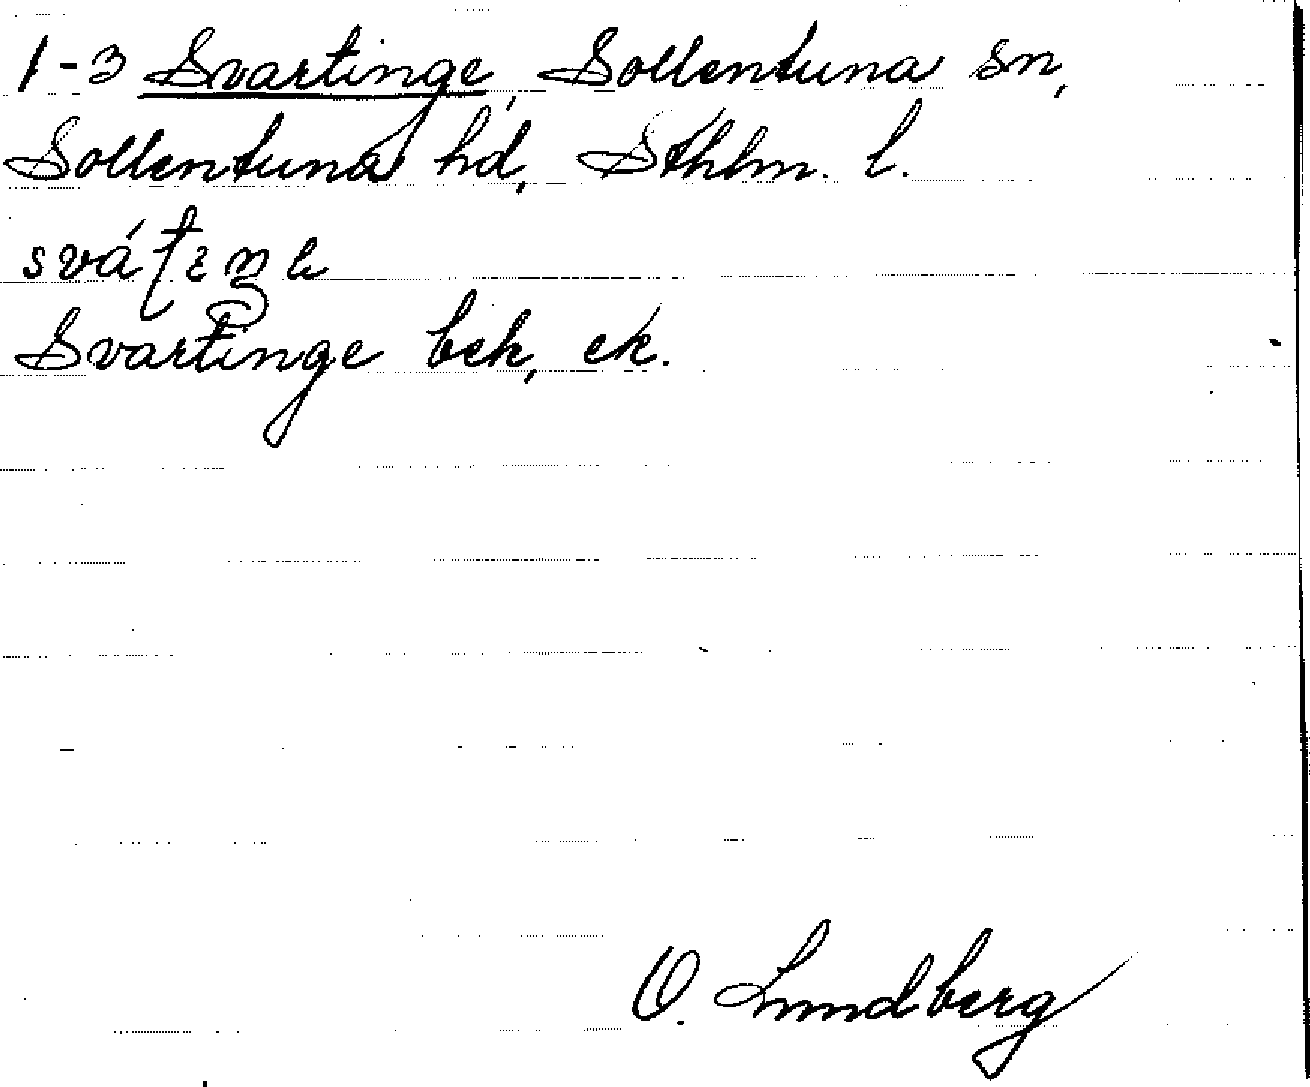 1-3 Svartinge, Sollentuna sn,
Sollentuna hd, Sthlm. l.
Svartinge bek, ek.
O. Lundberg